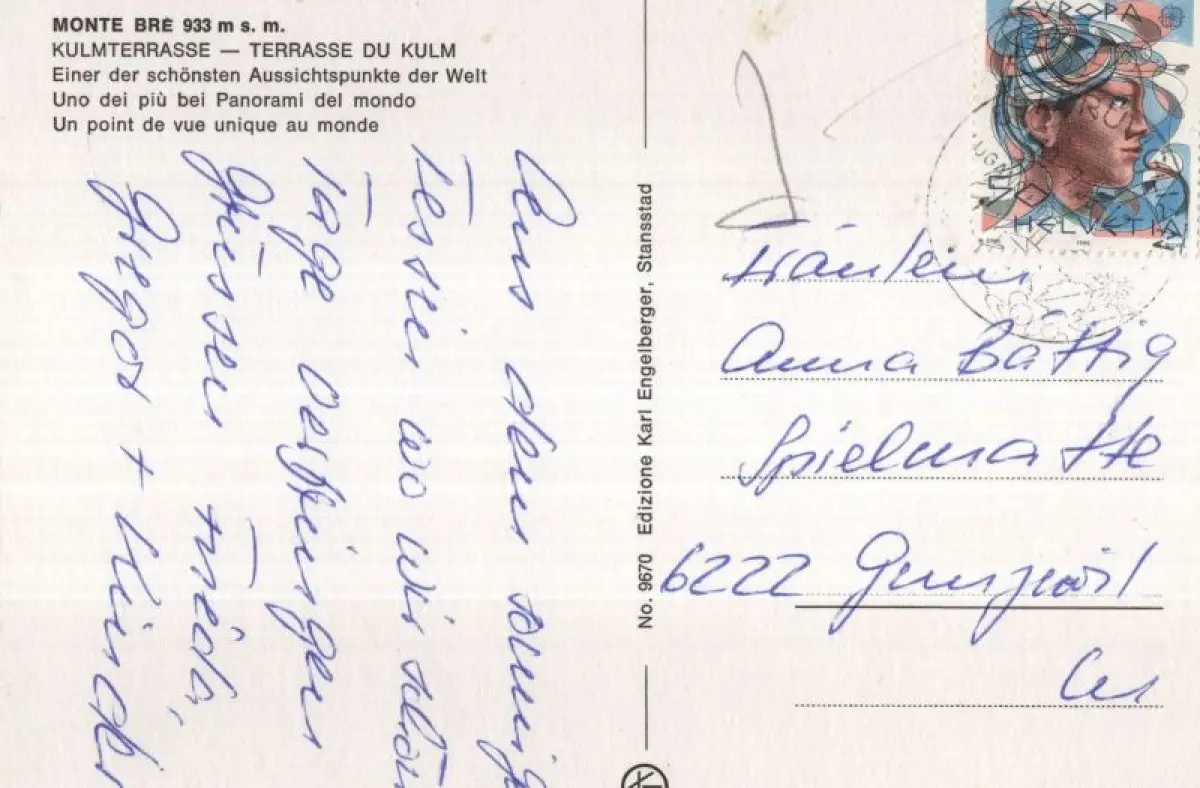 MONTE BRÈ 933 m s. m.
KULMTERRASSE — TERRASSE DU KULM
Einer der schönsten Aussichtspunkte der Welt
Uno dei più bei Panorami del mondo
Un point de vue unique au monde
Aus dem sonnige
Tessin wo wir schön
Tage verbringen
Grüssen
No. 9670 Edizione Karl Engelberger, Stansstad
EUROPA
HELVETIA
Fräulein
Anna Bättig
Spielmatte
6222 Gunzwil